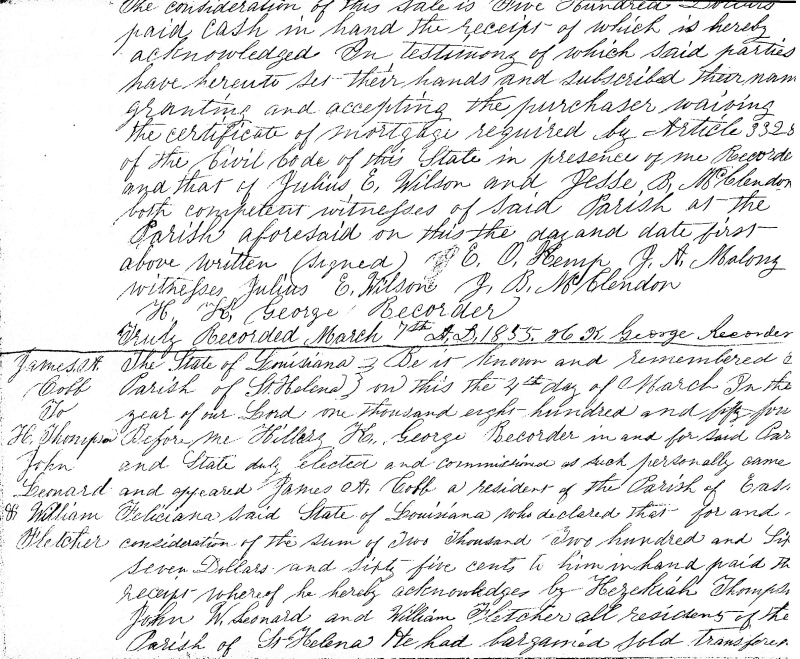 The consideration of this sale is Five Hundred Dollars
paid cash in hand the receipt of which is hereby
acknowledged In testimony of which said parties
have hereunto set their hands and subscribed their nam
granting and accepting the purchaser waiving
the certificate of mortgage required by Article 3328
of the Civil Code of this State in presence of me Recorde
and that of Julius E. Wilson and Jesse B. McClendon
both competent witnesses of said Parish at the
Parish aforesaid on this the day and date first
above written (signed) E. O. Kemp J. A. Malony
witnesses Julius E. Wilson J. B. McClendon
H. K. George Recorder
Truly Recorded March 7th A.D. 1855. H K George Recorder
James A. The State of Louisiana } Be it known and remembered
Cobb Parish of St Helena } on this the 4th day of March In the
To year of our Lord one thousand eight hundred and fifty
H. Thompson Before me Hillery H. George Recorder in and for said Par
John and State duly elected and commissioned as such personally came
Leonard and appeared James A. Cobb a resident of the Parish of East
& William Feliciana said State of Louisiana who declared that for and
Fletcher consideration of the sum of Two Thousand Two hundred and Six
seven Dollars and sixty five cents to him in hand paid th
receipt whereof he hereby acknowledges by Hezekiah Thomps
John W. Leonard and William Fletcher all residents of the
Parish of St Helena He had bargained sold transfere